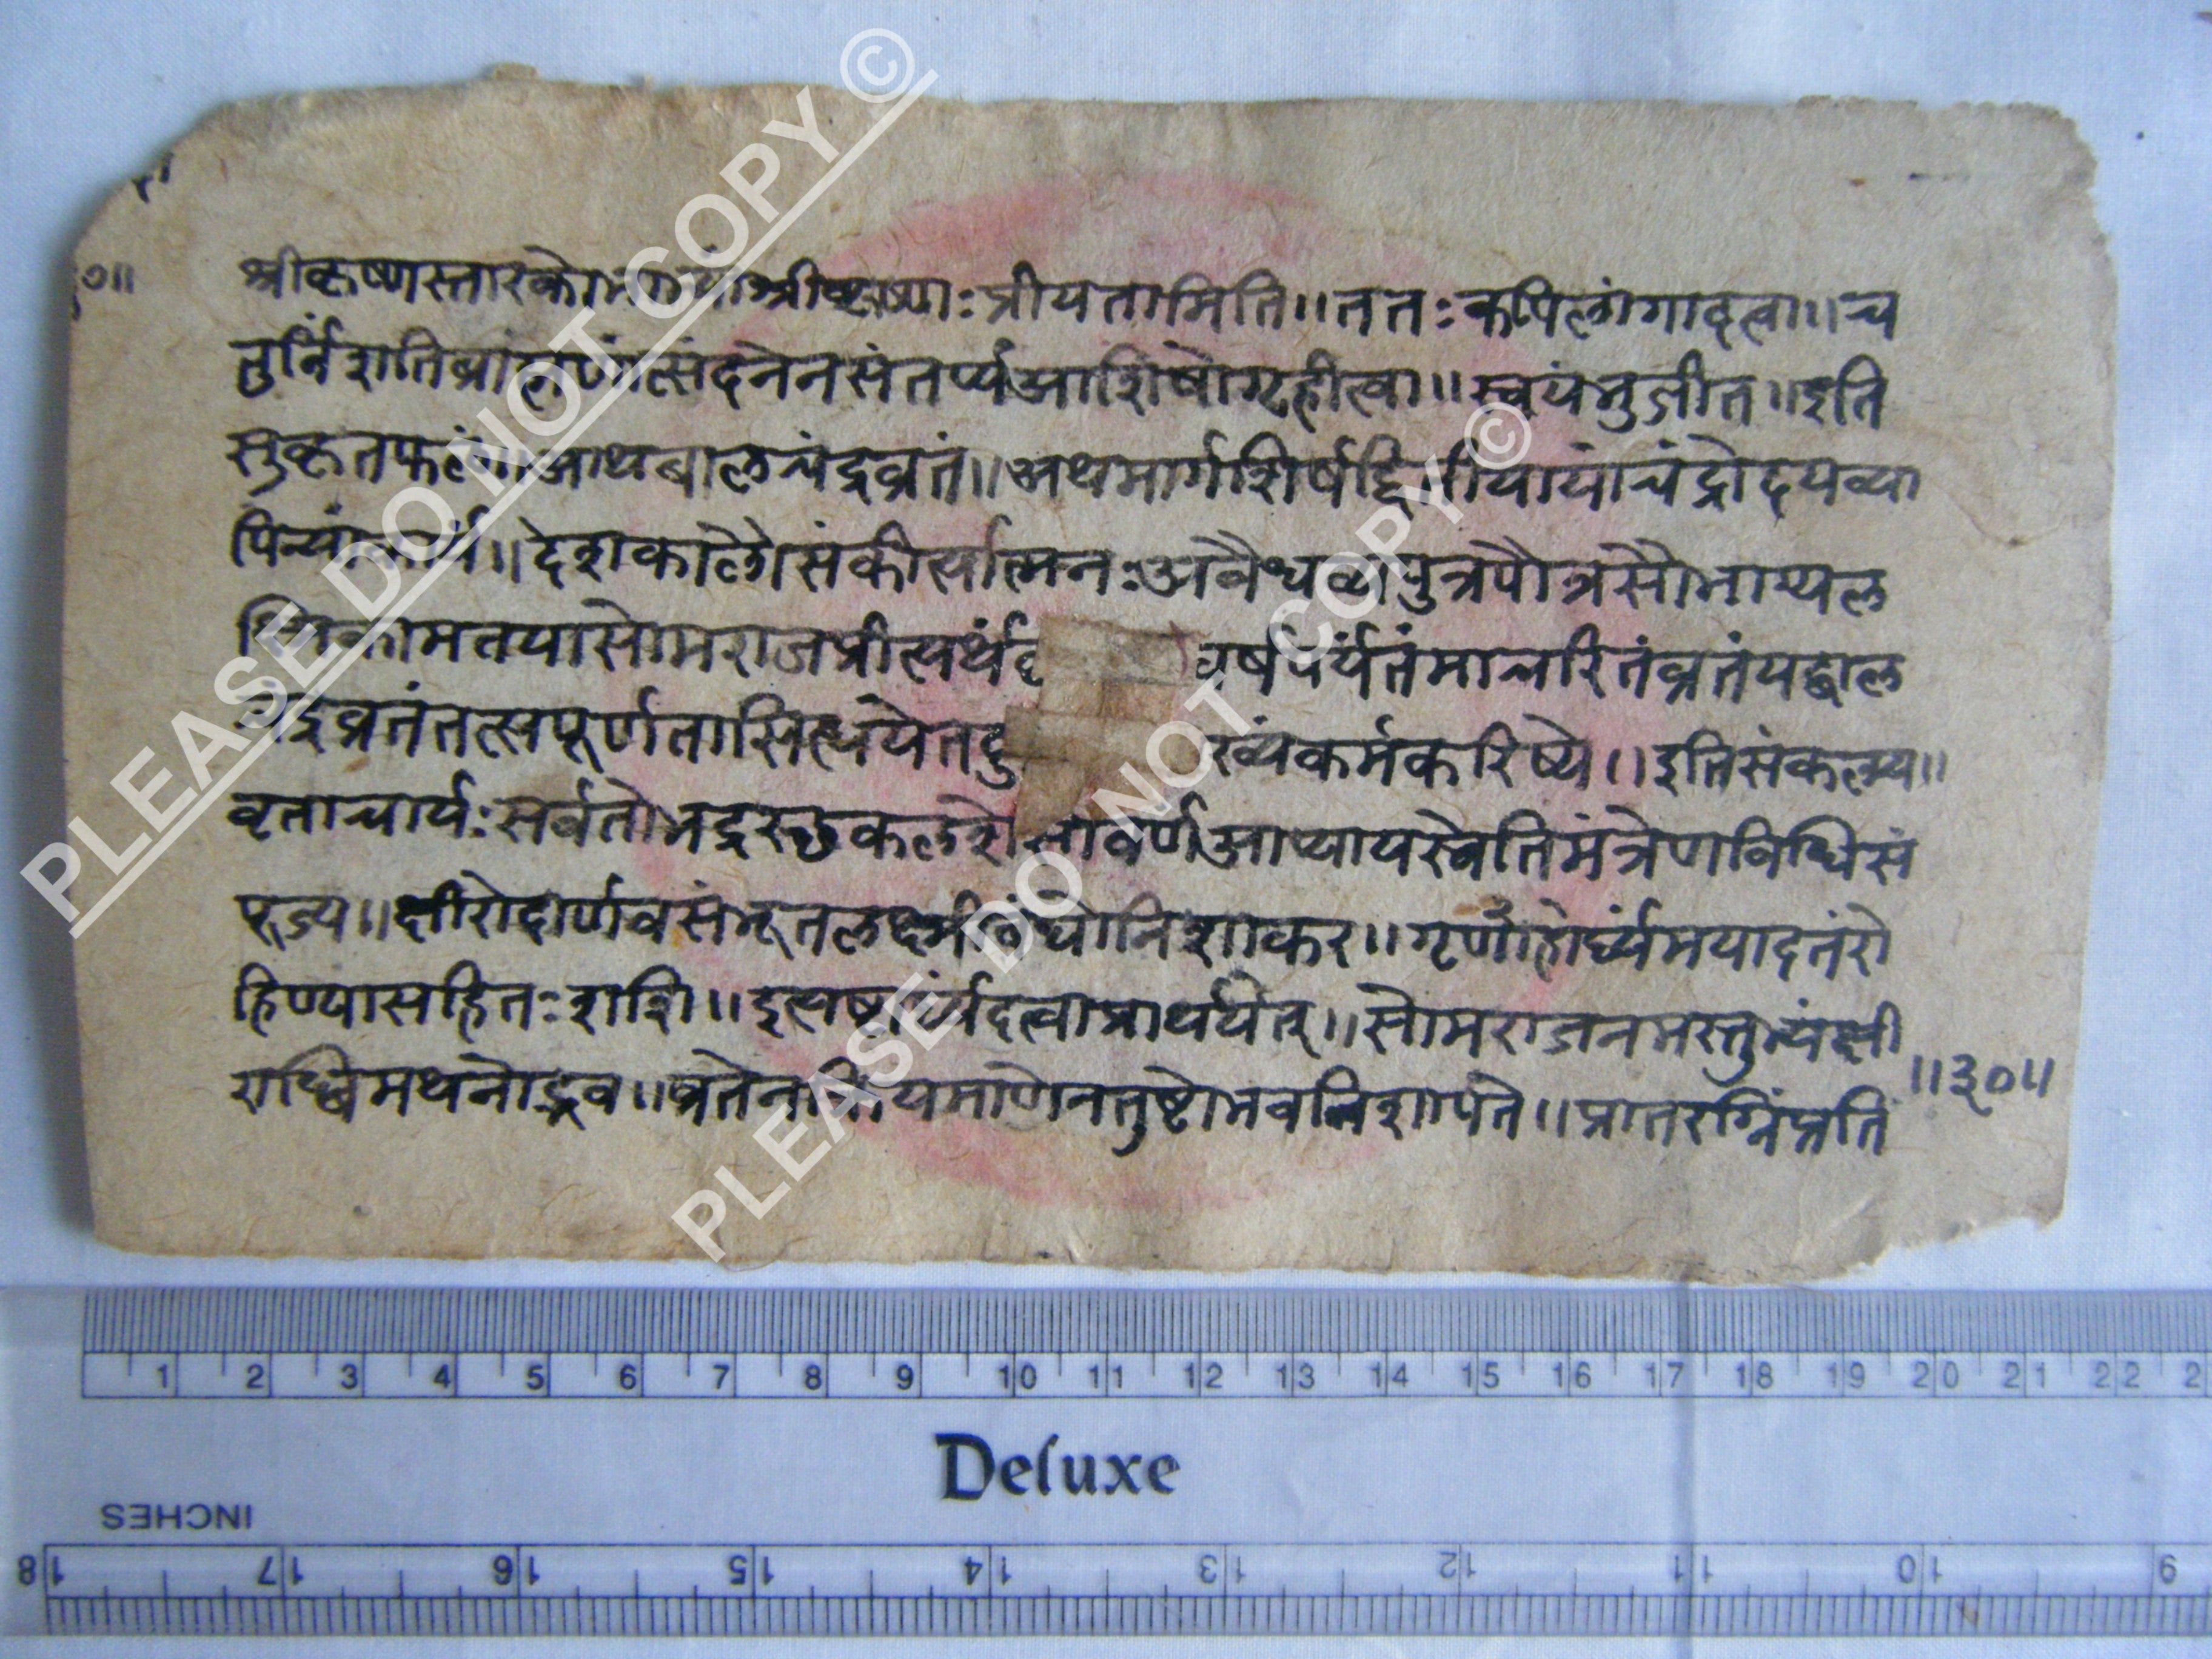 ०॥
श्रीकृष्णस्तारको श्रीकृष्णः प्रीयतामिति॥ततःकपिलांगादत्वा॥च
तुर्विंशतिब्रांह्मणांत्संदनेनसंतर्प्यआशिषोगृहीत्वा॥स्वयंभुंजीत॥इति
सुकृतफलं॥अथबालचंद्रव्रतं॥अथमार्गशिर्षद्वितीयायांचंद्रोदयव्या
पिन्यांकार्यं॥देशकालौसंकीर्त्यात्मनःअवैधव्यपुत्रपौत्रसौभाग्यल
कामतयासोमराजप्रीत्यर्थं वर्षपर्यंतंमाचरितंव्रतंयद्बाल
व्रतंतत्सपूर्णतासिध्यर्थंयेतदु ख्यंकर्मकरिष्ये॥इतिसंकल्प्य॥
वृताचार्यःसर्वतोभद्रस्छकलशे आप्यायस्वेतिमंत्रेणविधिसं
पूज्य॥क्षीरोदार्णवसंभूतलक्ष्मी निशाकर॥गृणांहोर्घ्यंमयादतंरो
हिण्यासहितःशशि॥ दत्वाप्रार्थयेत्॥सोमराजनमस्तुभ्यंक्षी
राब्धिमथनोद्भव॥व्रतेन तुष्टोभवनिशापते॥प्रातरग्निंप्रति
॥३०॥
PLEASE DO NOT COPY ©
PLEASE DO NOT COPY ©
1 2 3 4 5 6 7 8 9 10 11 12 13 14 15 16 17 18 19 20 21 22 2
Deluxe
INCHES
18 17 16 15 14 13 12 11 10 9